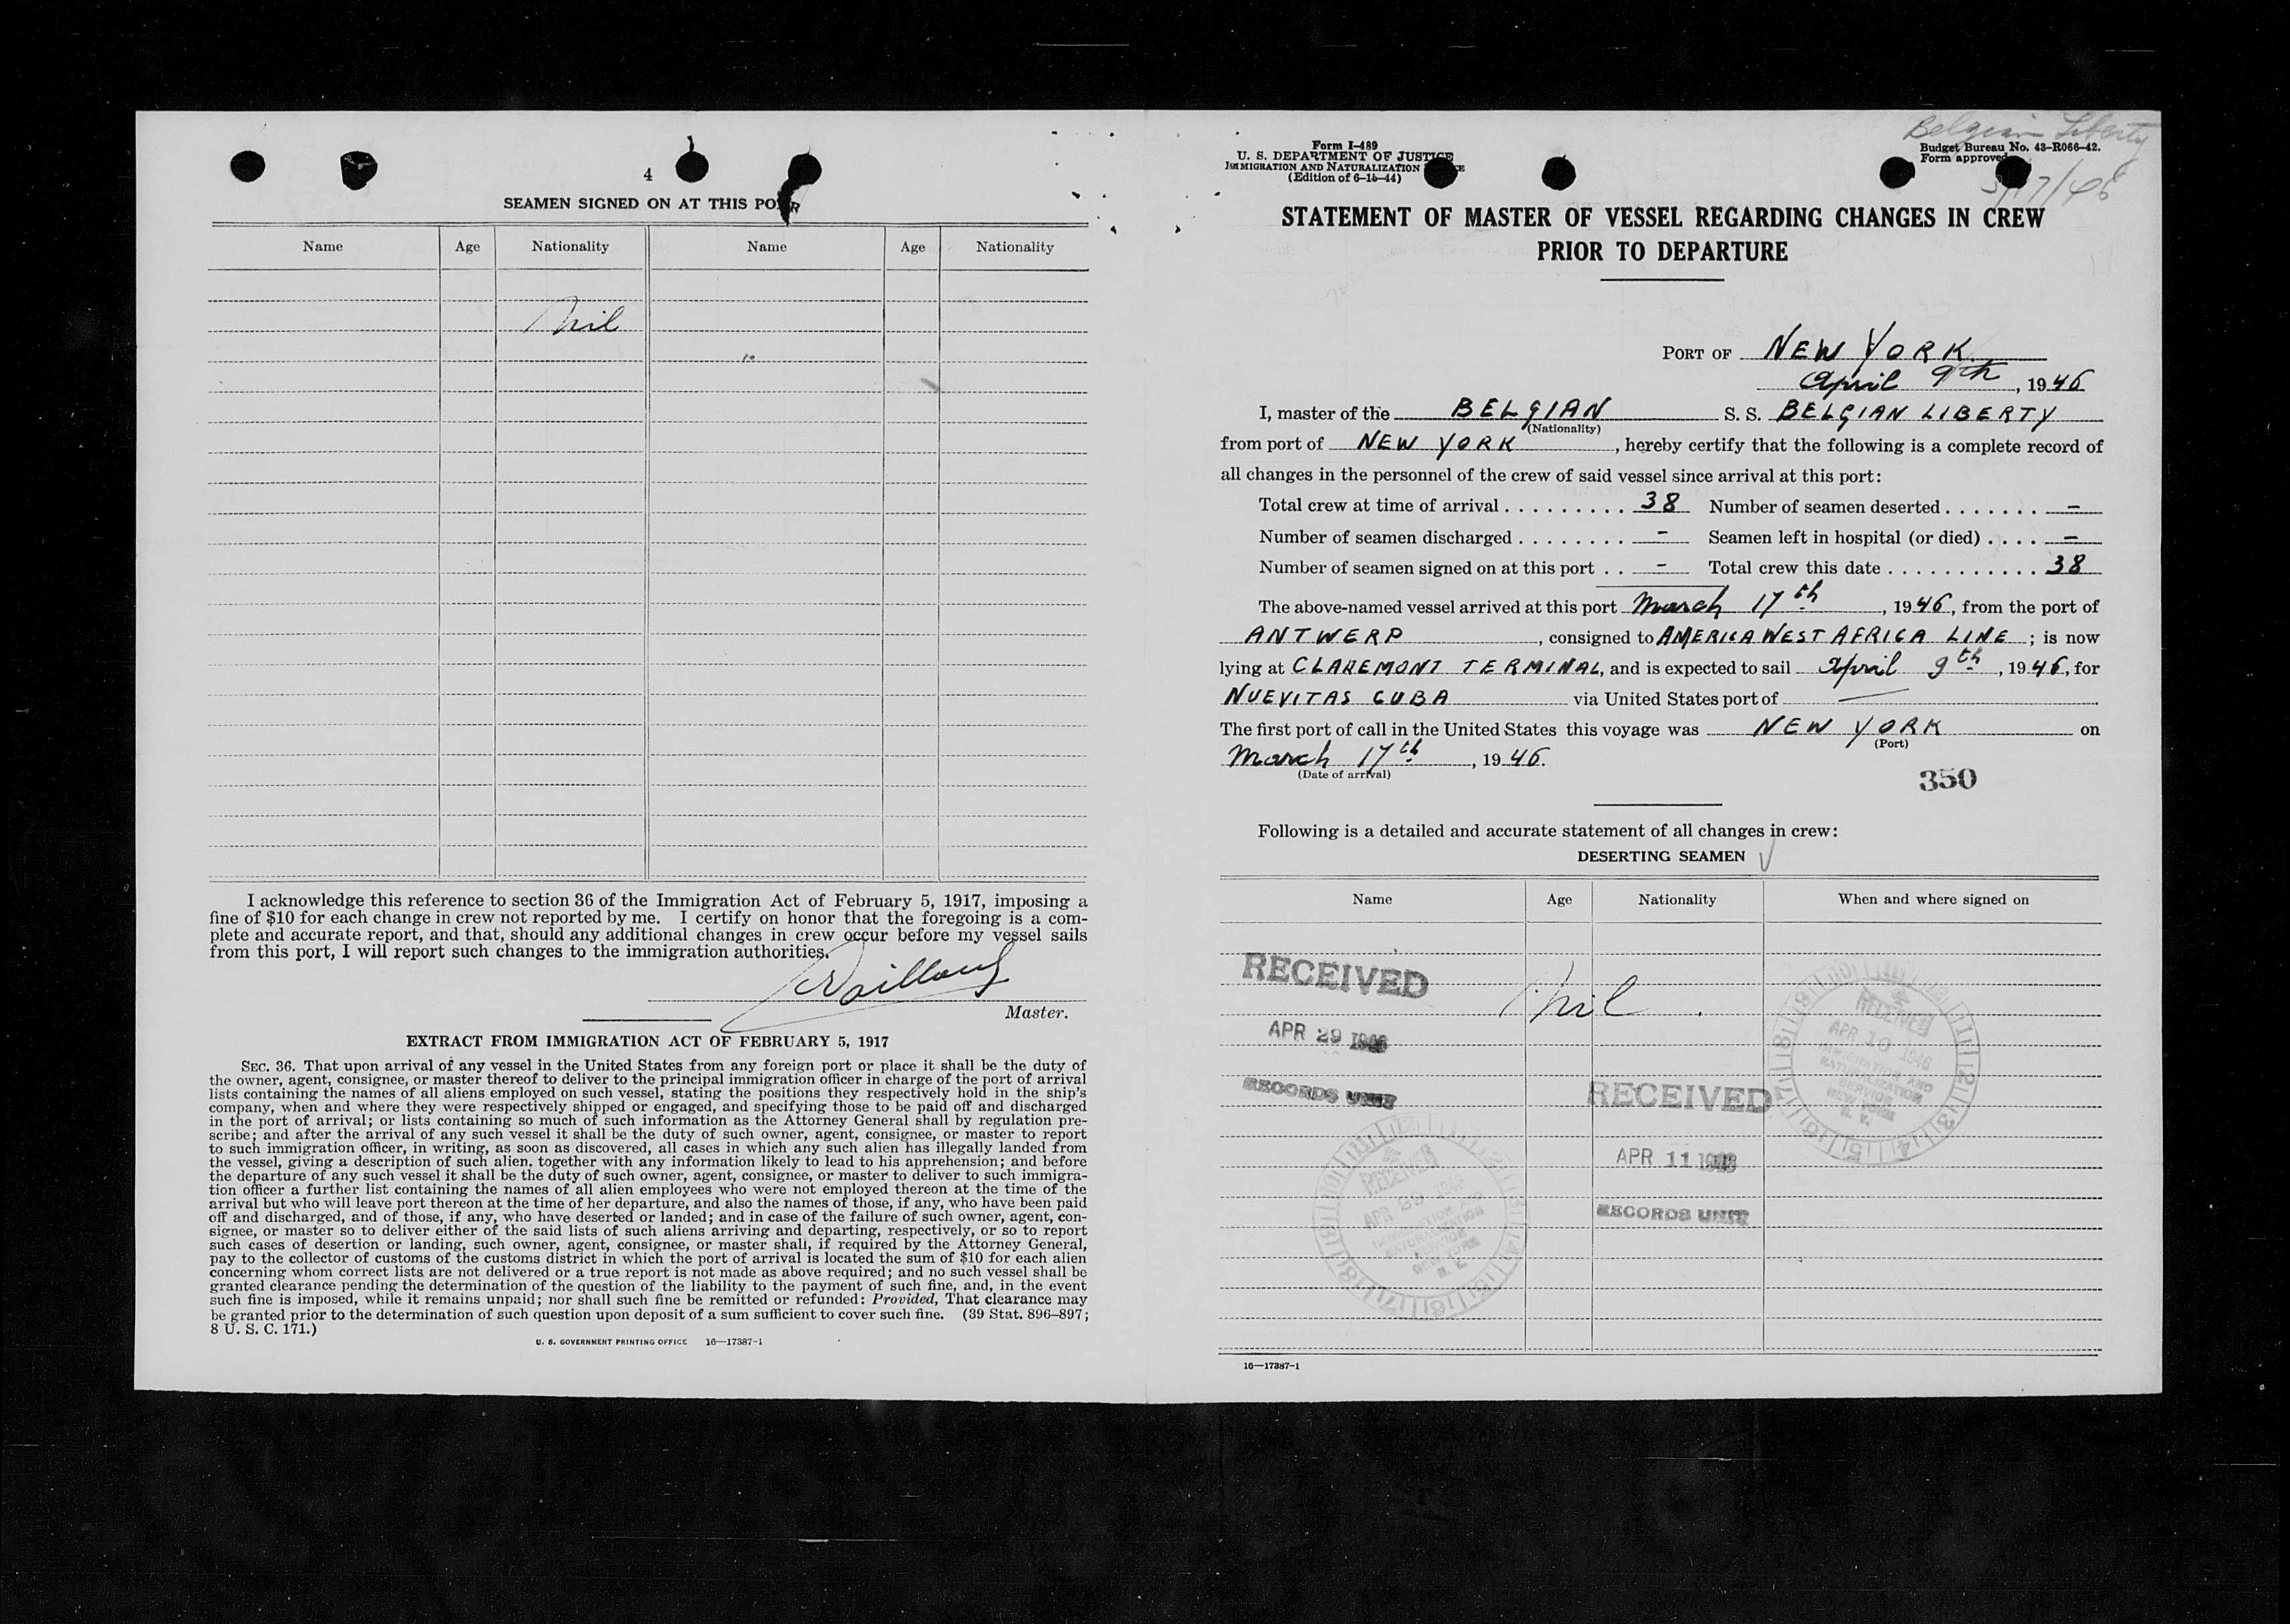 4
SEAMEN SIGNED ON AT THIS PORT
Name Age Nationality Name Age Nationality
Nil
I acknowledge this reference to section 36 of the Immigration Act of February 5, 1917, imposing a
fine of $10 for each change in crew not reported by me. I certify on honor that the foregoing is a com-
plete and accurate report, and that, should any additional changes in crew occur before my vessel sails
from this port, I will report such changes to the immigration authorities.
Master.
EXTRACT FROM IMMIGRATION ACT OF FEBRUARY 5, 1917
SEC. 36. That upon arrival of any vessel in the United States from any foreign port or place it shall be the duty of
the owner, agent, consignee, or master thereof to deliver to the principal immigration officer in charge of the port of arrival
lists containing the names of all aliens employed on such vessel, stating the positions they respectively hold in the ship's
company, when and where they were respectively shipped or engaged, and specifying those to be paid off and discharged
in the port of arrival; or lists containing so much of such information as the Attorney General shall by regulation pre-
scribe; and after the arrival of any such vessel it shall be the duty of such owner, agent, consignee, or master to report
to such immigration officer, in writing, as soon as discovered, all cases in which any such alien has illegally landed from
the vessel, giving a description of such alien, together with any information likely to lead to his apprehension; and before
the departure of any such vessel it shall be the duty of such owner, agent, consignee, or master to deliver to such immigra-
tion officer a further list containing the names of all alien employees who were not employed thereon at the time of the
arrival but who will leave port thereon at the time of her departure, and also the names of those, if any, who have been paid
off and discharged, and of those, if any, who have deserted or landed; and in case of the failure of such owner, agent, con-
signee, or master so to deliver either of the said lists of such aliens arriving and departing, respectively, or so to report
such cases of desertion or landing, such owner, agent, consignee, or master shall, if required by the Attorney General,
pay to the collector of customs of the customs district in which the port of arrival is located the sum of $10 for each alien
concerning whom correct lists are not delivered or a true report is not made as above required; and no such vessel shall be
granted clearance pending the determination of the question of the liability to the payment of such fine, and, in the event
such fine is imposed, while it remains unpaid; nor shall such fine be remitted or refunded: Provided, That clearance may
be granted prior to the determination of such question upon deposit of a sum sufficient to cover such fine. (39 Stat. 896–897;
8 U. S. C. 171.)
U. S. GOVERNMENT PRINTING OFFICE 16—17387-1
Belgian Liberty
Form I-489
U. S. DEPARTMENT OF JUSTICE
IMMIGRATION AND NATURALIZATION
(Edition of 6-15-44)
Budget Bureau No. 43-R066-42.
Form approved
STATEMENT OF MASTER OF VESSEL REGARDING CHANGES IN CREW
PRIOR TO DEPARTURE
PORT OF NEW YORK.
April 9th, 1946
I, master of the BELGIAN S. S. BELGIAN LIBERTY
(Nationality)
from port of NEW YORK, hereby certify that the following is a complete record of
all changes in the personnel of the crew of said vessel since arrival at this port:
Total crew at time of arrival . . . . . . . . . 38 Number of seamen deserted . . . . . . . –
Number of seamen discharged . . . . . . . . – Seamen left in hospital (or died) . . . . –
Number of seamen signed on at this port . . – Total crew this date . . . . . . . . . . . 38
The above-named vessel arrived at this port March 17th, 1946, from the port of
ANTWERP, consigned to AMERICA WEST AFRICA LINE; is now
lying at CLAREMONT TERMINAL, and is expected to sail April 9th, 1946, for
NUEVITAS CUBA via United States port of —
The first port of call in the United States this voyage was NEW YORK on
(Port)
March 17th, 1946.
(Date of arrival)
350
Following is a detailed and accurate statement of all changes in crew:
DESERTING SEAMEN
Name Age Nationality When and where signed on
RECEIVED
APR 29 1946
RECORDS UNIT
Nil.
RECEIVED
APR 10 1946
IMMIGRATION AND
NATURALIZATION
SERVICE
NEW YORK
N. Y.
RECEIVED
APR 11 1946
RECORDS UNIT
RECEIVED
APR 29 1946
IMMIGRATION AND
NATURALIZATION
SERVICE
NEW YORK
N. Y.
16—17387-1